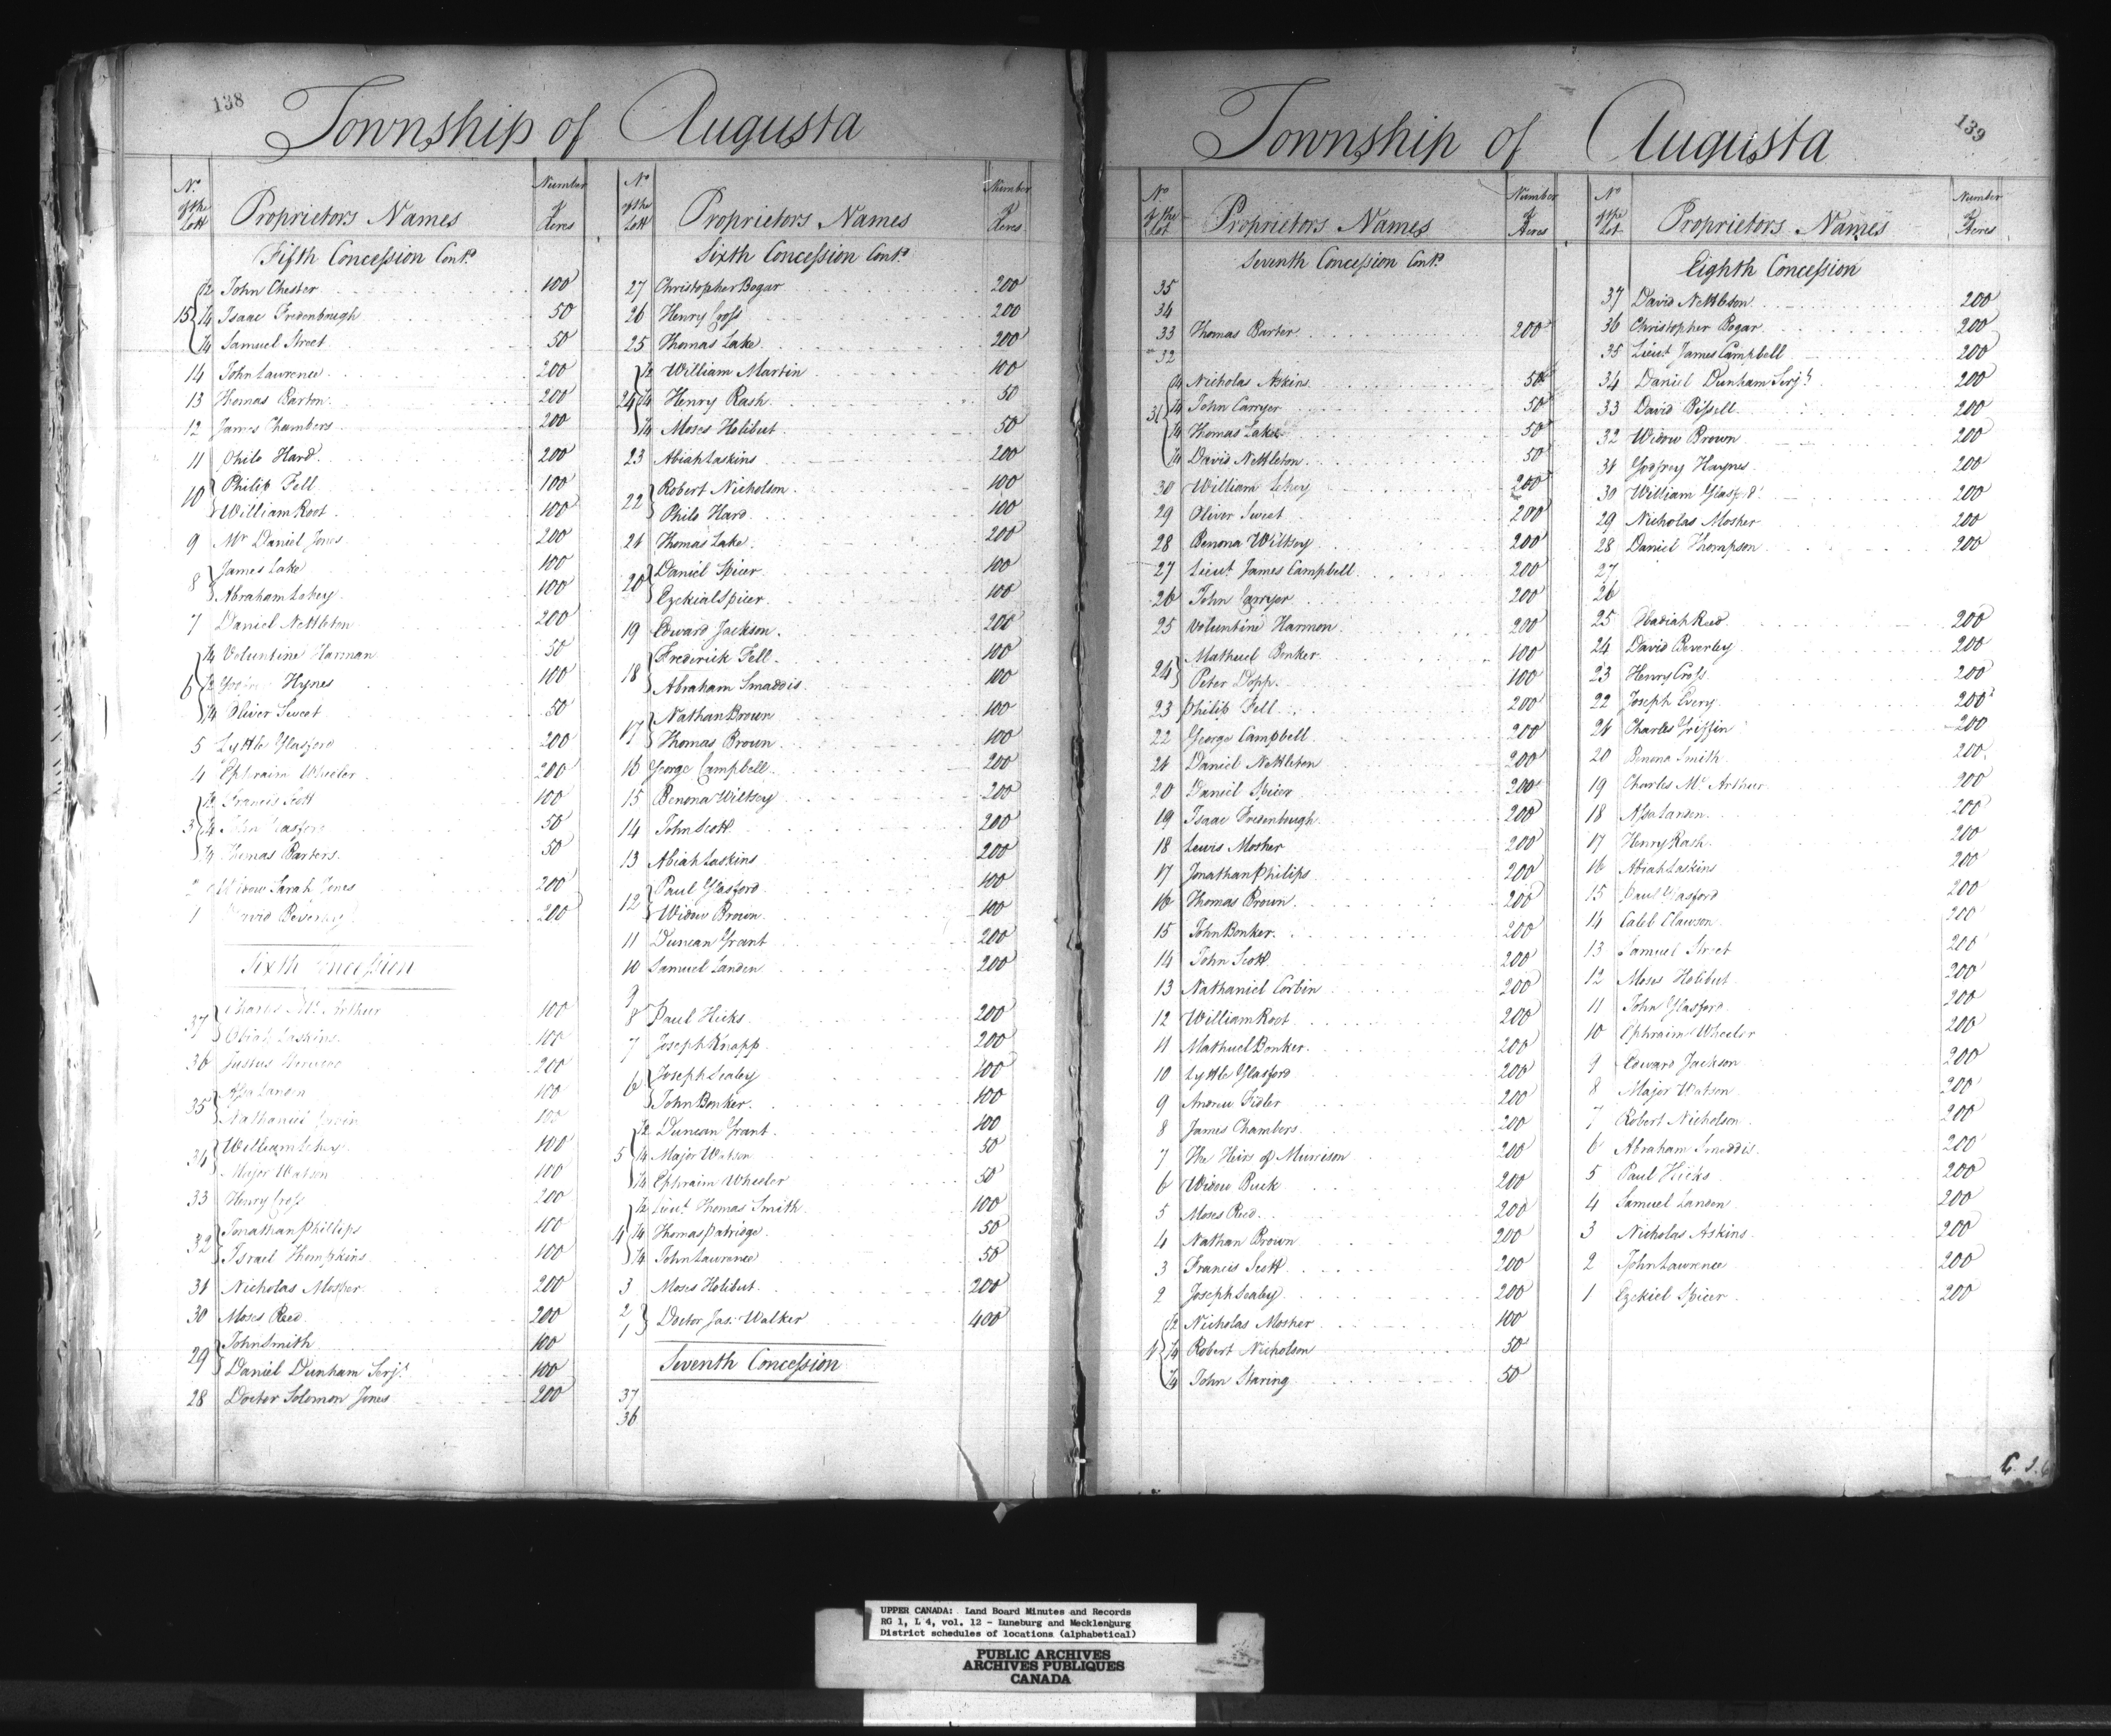 138
Township of Augusta
No. of the Lott Proprietors Names Number of Acres
Fifth Concession Cont.d
15 1/2 John Chester 100
1/4 Isaac Fredenbrugh 50
1/4 Samuel Street 50
14 John Lawrence 200
13 Thomas Barton 200
12 James Chambers 200
11 Philo Hard 200
10 Philip Fell 100
William Root 100
9 Mr Daniel Jones 200
8 James Lake 100
Abraham Lehey 100
7 Daniel Nettleton 200
6 1/4 Voluntine Harman 50
1/2 Hynes 100
1/4 Oliver Sweet 50
5 Lyttle Glasford 200
4 Ephraim Wheeler 200
3 1/2 Francis Scott 100
1/4 John Glasford 50
1/4 Thomas Barters 50
2 Widow Sarah Jones 200
1 David Beverley 200
Sixth Concession
37 Charles Mc Arthur 100
Abiah Laskins 100
36 Justus 200
35 Asa Landon 100
Nathaniel 100
34 William Lehey 100
Major Watson 100
33 Henry Cross 200
32 Jonathan Phillips 100
Israel Thompkins 100
31 Nicholas Mosher 200
30 Moses Reed 200
29 John Smith 100
Daniel Dunham Serjt 100
28 Doctor Solomon Jones 200
No of the Lott Proprietors Names Number of Acres
Sixth Concession Cont.d
27 Christopher Bogar 200
26 Henry Cross 200
25 Thomas Lake 200
24 1/2 William Martin 100
1/4 Henry Rash 50
1/4 Moses Holibut 50
23 Abiah Laskins 200
22 Robert Nicholson 100
Philo Hard 100
21 Thomas Lake 200
20 Daniel Spicer 100
Ezekial Spicer 100
19 Edward Jackson 200
18 Frederick Fell 100
Abraham Smaddis 100
17 Nathan Brown 100
Thomas Brown 100
16 George Campbell 200
15 Benona Wiltsey 200
14 John Scott 200
13 Abiah Laskins 200
12 Paul Glasford 100
Widow Brown 100
11 Duncan Grant 200
10 Samuel Landen 200
9
8 Paul Hicks 200
7 Joseph Knapp 200
6 Joseph Sealey 100
John Bonker 100
5 1/2 Duncan Grant 100
1/4 Major Watson 50
1/4 Ephraim Wheeler 50
4 1/2 Lieut. Thomas Smith 100
1/4 Thomas Patridge 50
1/4 John Lawrence 50
3 Moses Holibut 200
2
1 Doctor Jas. Walker 400
Seventh Concession
37
36
139
Township of Augusta
No of the Lot Proprietors Names Number of Acres
Seventh Concession Cont.d
35
34
33 Thomas Barter 200
32
31 1/4 Nicholas Askins 50
1/4 John Carryer 50
1/4 Thomas Lake 50
1/4 David Nettleton 50
30 William Lehey 200
29 Oliver Sweet 200
28 Benona Wiltsey 200
27 Lieut James Campbell 200
26 John Carryer 200
25 Voluntine Harmon 200
24 Mathuel Bonker 100
Peter Dopp 100
23 Philip Fell 200
22 George Campbell 200
21 Daniel Nettleton 200
20 Daniel Spicer 200
19 Isaac Fredenbrugh 200
18 Lewis Mosher 200
17 Jonathan Philips 200
16 Thomas Brown 200
15 John Bonker 200
14 John Scott 200
13 Nathaniel Corbin 200
12 William Root 200
11 Mathuel Bonker 200
10 Lyttle Glasford 200
9 Andrew Fidler 200
8 James Chambers 200
7 The Heirs of Munison 200
6 Widow Buck 200
5 Moses Reed 200
4 Nathan Brown 200
3 Francis Scott 200
2 Joseph Sealey 200
1 1/2 Nicholas Mosher 100
1/4 Robert Nicholson 50
1/4 John Staring 50
No of the Lot Proprietors Names Number of Acres
Eighth Concession
37 David Nettleton 200
36 Christopher Bogar 200
35 Lieut James Campbell 200
34 Daniel Dunham Serjt 200
33 David Bissell 200
32 Widow Brown 200
31 Godfrey Haynes 200
30 William Glasford 200
29 Nicholas Mosher 200
28 Daniel Thompson 200
27
26
25 Obadiah Reed 200
24 David Beverley 200
23 Henry Cross 200
22 Joseph Every 200
21 Charles Griffin 200
20 Benona Smith 200
19 Charles Mc Arthur 200
18 Asa Landon 200
17 Henry Rash 200
16 Abiah Laskins 200
15 Paul Glasford 200
14 Caleb Clawson 200
13 Samuel Street 200
12 Moses Holibut 200
11 John Glasford 200
10 Ephraim Wheeler 200
9 Edward Jackson 200
8 Major Watson 200
7 Robert Nicholson 200
6 Abraham Smaddis 200
5 Paul Hicks 200
4 Samuel Landon 200
3 Nicholas Askins 200
2 John Lawrence 200
1 Ezekiel Spicer 200
UPPER CANADA: Land Board Minutes and Records
RG 1, L 4, vol. 12 - Luneburg and Mecklenburg
District schedules of locations (alphabetical)
PUBLIC ARCHIVES
ARCHIVES PUBLIQUES
CANADA